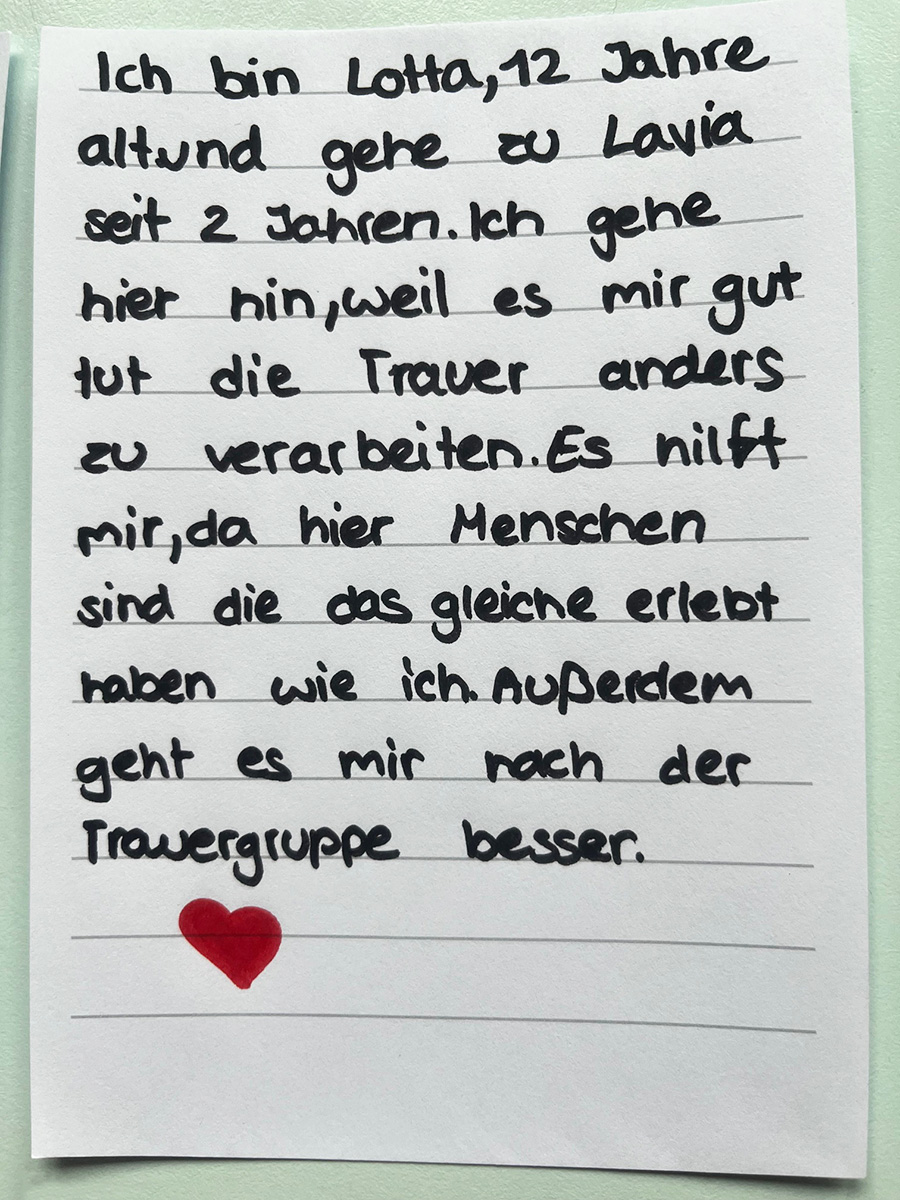 Ich bin Lotta, 12 Jahre
alt und gehe zu Lavia
seit 2 Jahren. Ich gehe
hier hin, weil es mir gut
tut die Trauer anders
zu verarbeiten. Es hilft
mir, da hier Menschen
sind die das gleiche erlebt
haben wie ich. Außerdem
geht es mir nach der
Trauergruppe besser.